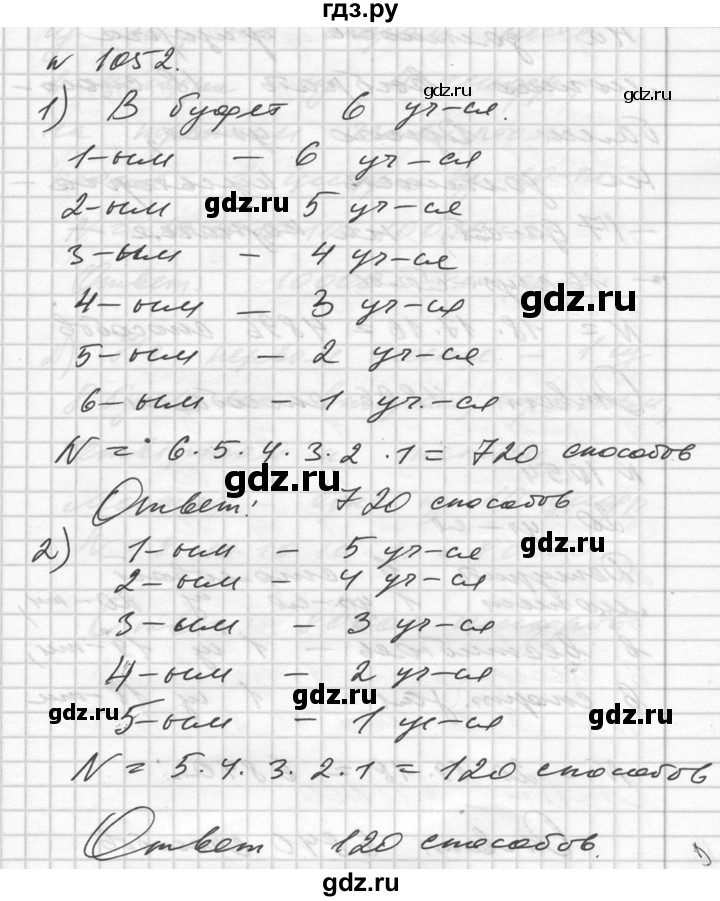 гдз.ру
№ 1052.
1) В буфет 6 уч-ся.
1-ым — 6 уч-ся
2-ым 5 уч-ся
3-ым - 4 уч-ся
4-ым — 3 уч-ся
5-ым — 2 уч-ся
6-ым - 1 уч.-ся
N = 6·5·4·3·2·1 = 720 способов
Ответ: 720 способов
2) 1-ым — 5 уч-ся
2-ым — 4 уч-ся
3-ым - 3 уч-ся
4-ым — 2 уч-ся
5-ым - 1 уч-ся
N = 5·4·3·2·1 = 120 способов
Ответ 120 способов.
gdz.ru
gdz.ru
gdz.ru
gdz.ru
gdz.ru
gdz.ru
gdz.ru
gdz.ru
gdz.ru
gdz.ru